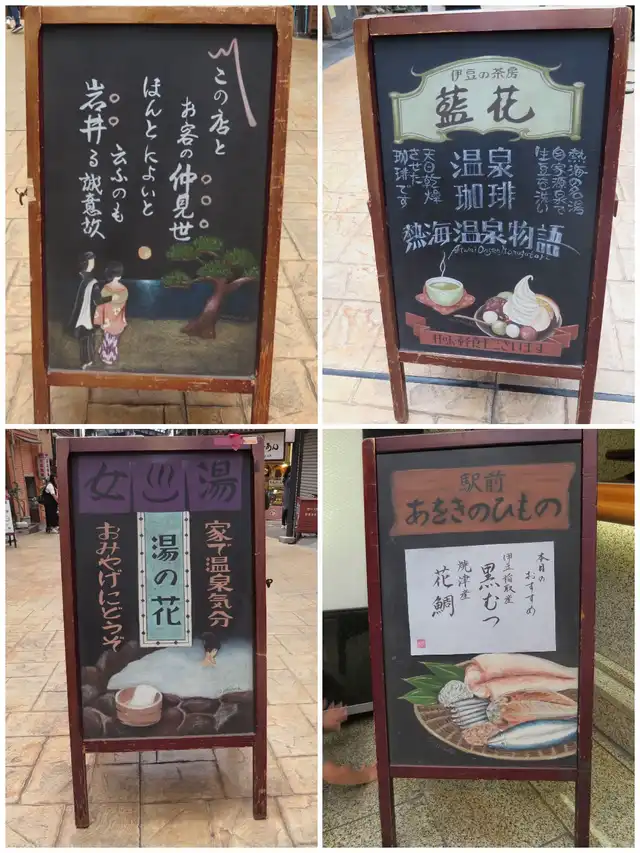 この店と
お客の仲見世
ほんとによいと
云ふのも
岩井る誠意故
伊豆の茶房
藍花
熱海の名湯
自家源泉で
生豆を洗い
温泉
珈琲
天日乾燥
させた
珈琲です
熱海温泉物語
Atami Onsen Monogatari
甘味・軽食もございます
女♨湯
家で温泉気分
湯の花
おみやげにどうぞ
駅前
あをきのひもの
本日の
おすすめ
伊豆稲取産
黒むつ
焼津産
花鯛